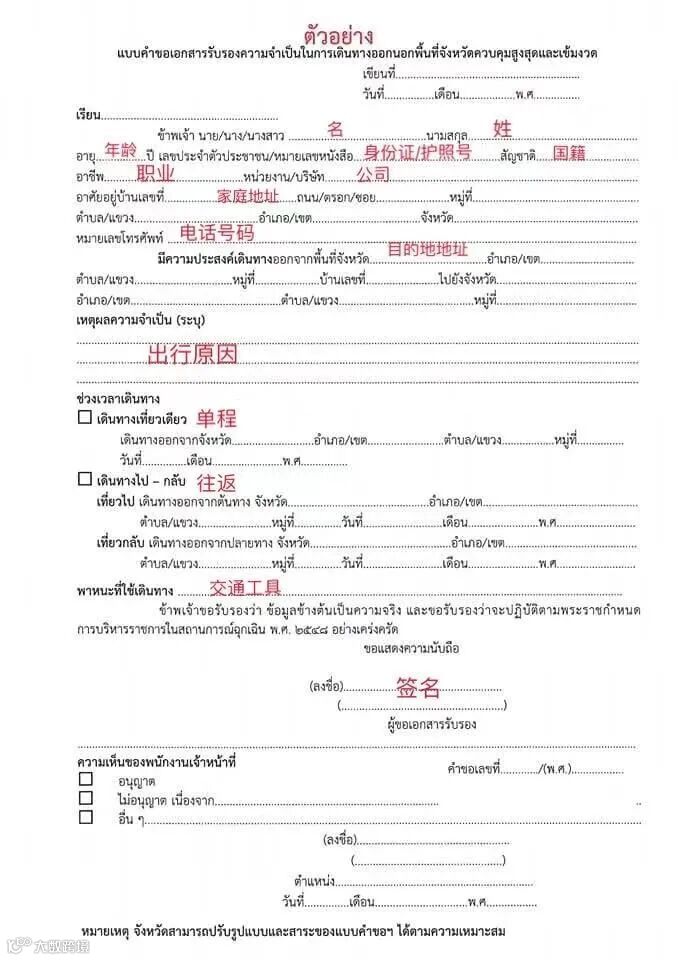 ตัวอย่าง
แบบคำขอเอกสารรับรองความจำเป็นในการเดินทางออกนอกพื้นที่จังหวัดควบคุมสูงสุดและเข้มงวด
เขียนที่..................................................
วันที่.................เดือน.....................พ.ศ..................
เรียน..................................................
ข้าพเจ้า นาย/นาง/นางสาว ............名............นามสกุล............姓............
อายุ...年龄...ปี เลขประจำตัวประชาชน/หมายเลขหนังสือ...身份证/护照号...สัญชาติ...国籍...
อาชีพ.........职业.........หน่วยงาน/บริษัท.........公司.........
อาศัยอยู่บ้านเลขที่.........家庭地址.........ถนน/ตรอก/ซอย....................หมู่ที่....................
ตำบล/แขวง..............................อำเภอ/เขต..............................จังหวัด..............................
หมายเลขโทรศัพท์ ...电话号码..............................
มีความประสงค์เดินทางออกจากพื้นที่จังหวัด...目的地地址...อำเภอ/เขต....................
ตำบล/แขวง....................หมู่ที่....................บ้านเลขที่....................ไปยังจังหวัด....................
อำเภอ/เขต..............................ตำบล/แขวง..............................หมู่ที่....................
เหตุผลความจำเป็น (ระบุ)
出行原因
ช่วงเวลาเดินทาง
☐ เดินทางเที่ยวเดียว 单程
เดินทางออกจากจังหวัด....................อำเภอ/เขต....................ตำบล/แขวง...............หมู่ที่............
วันที่............เดือน....................พ.ศ....................
☐ เดินทางไป – กลับ 往返
เที่ยวไป เดินทางออกจากต้นทาง จังหวัด..............................อำเภอ/เขต..............................
ตำบล/แขวง....................หมู่ที่............วันที่....................เดือน....................พ.ศ....................
เที่ยวกลับ เดินทางออกจากปลายทาง จังหวัด..............................อำเภอ/เขต..............................
ตำบล/แขวง....................หมู่ที่............วันที่....................เดือน....................พ.ศ....................
พาหนะที่ใช้เดินทาง .........交通工具..............................
ข้าพเจ้าขอรับรองว่า ข้อมูลข้างต้นเป็นความจริง และขอรับรองว่าจะปฏิบัติตามพระราชกำหนด
การบริหารราชการในสถานการณ์ฉุกเฉิน พ.ศ. ๒๕๔๘ อย่างเคร่งครัด
ขอแสดงความนับถือ
(ลงชื่อ)............签名....................
(........................................)
ผู้ขอเอกสารรับรอง
ความเห็นของพนักงานเจ้าหน้าที่
คำขอเลขที่............/(พ.ศ.)...............
☐ อนุญาต
☐ ไม่อนุญาต เนื่องจาก..................................................
☐ อื่น ๆ..................................................
(ลงชื่อ)........................................
(........................................)
ตำแหน่ง........................................
วันที่............เดือน....................พ.ศ....................
หมายเหตุ จังหวัดสามารถปรับรูปแบบและสาระของแบบคำขอฯ ได้ตามความเหมาะสม
大数跨境